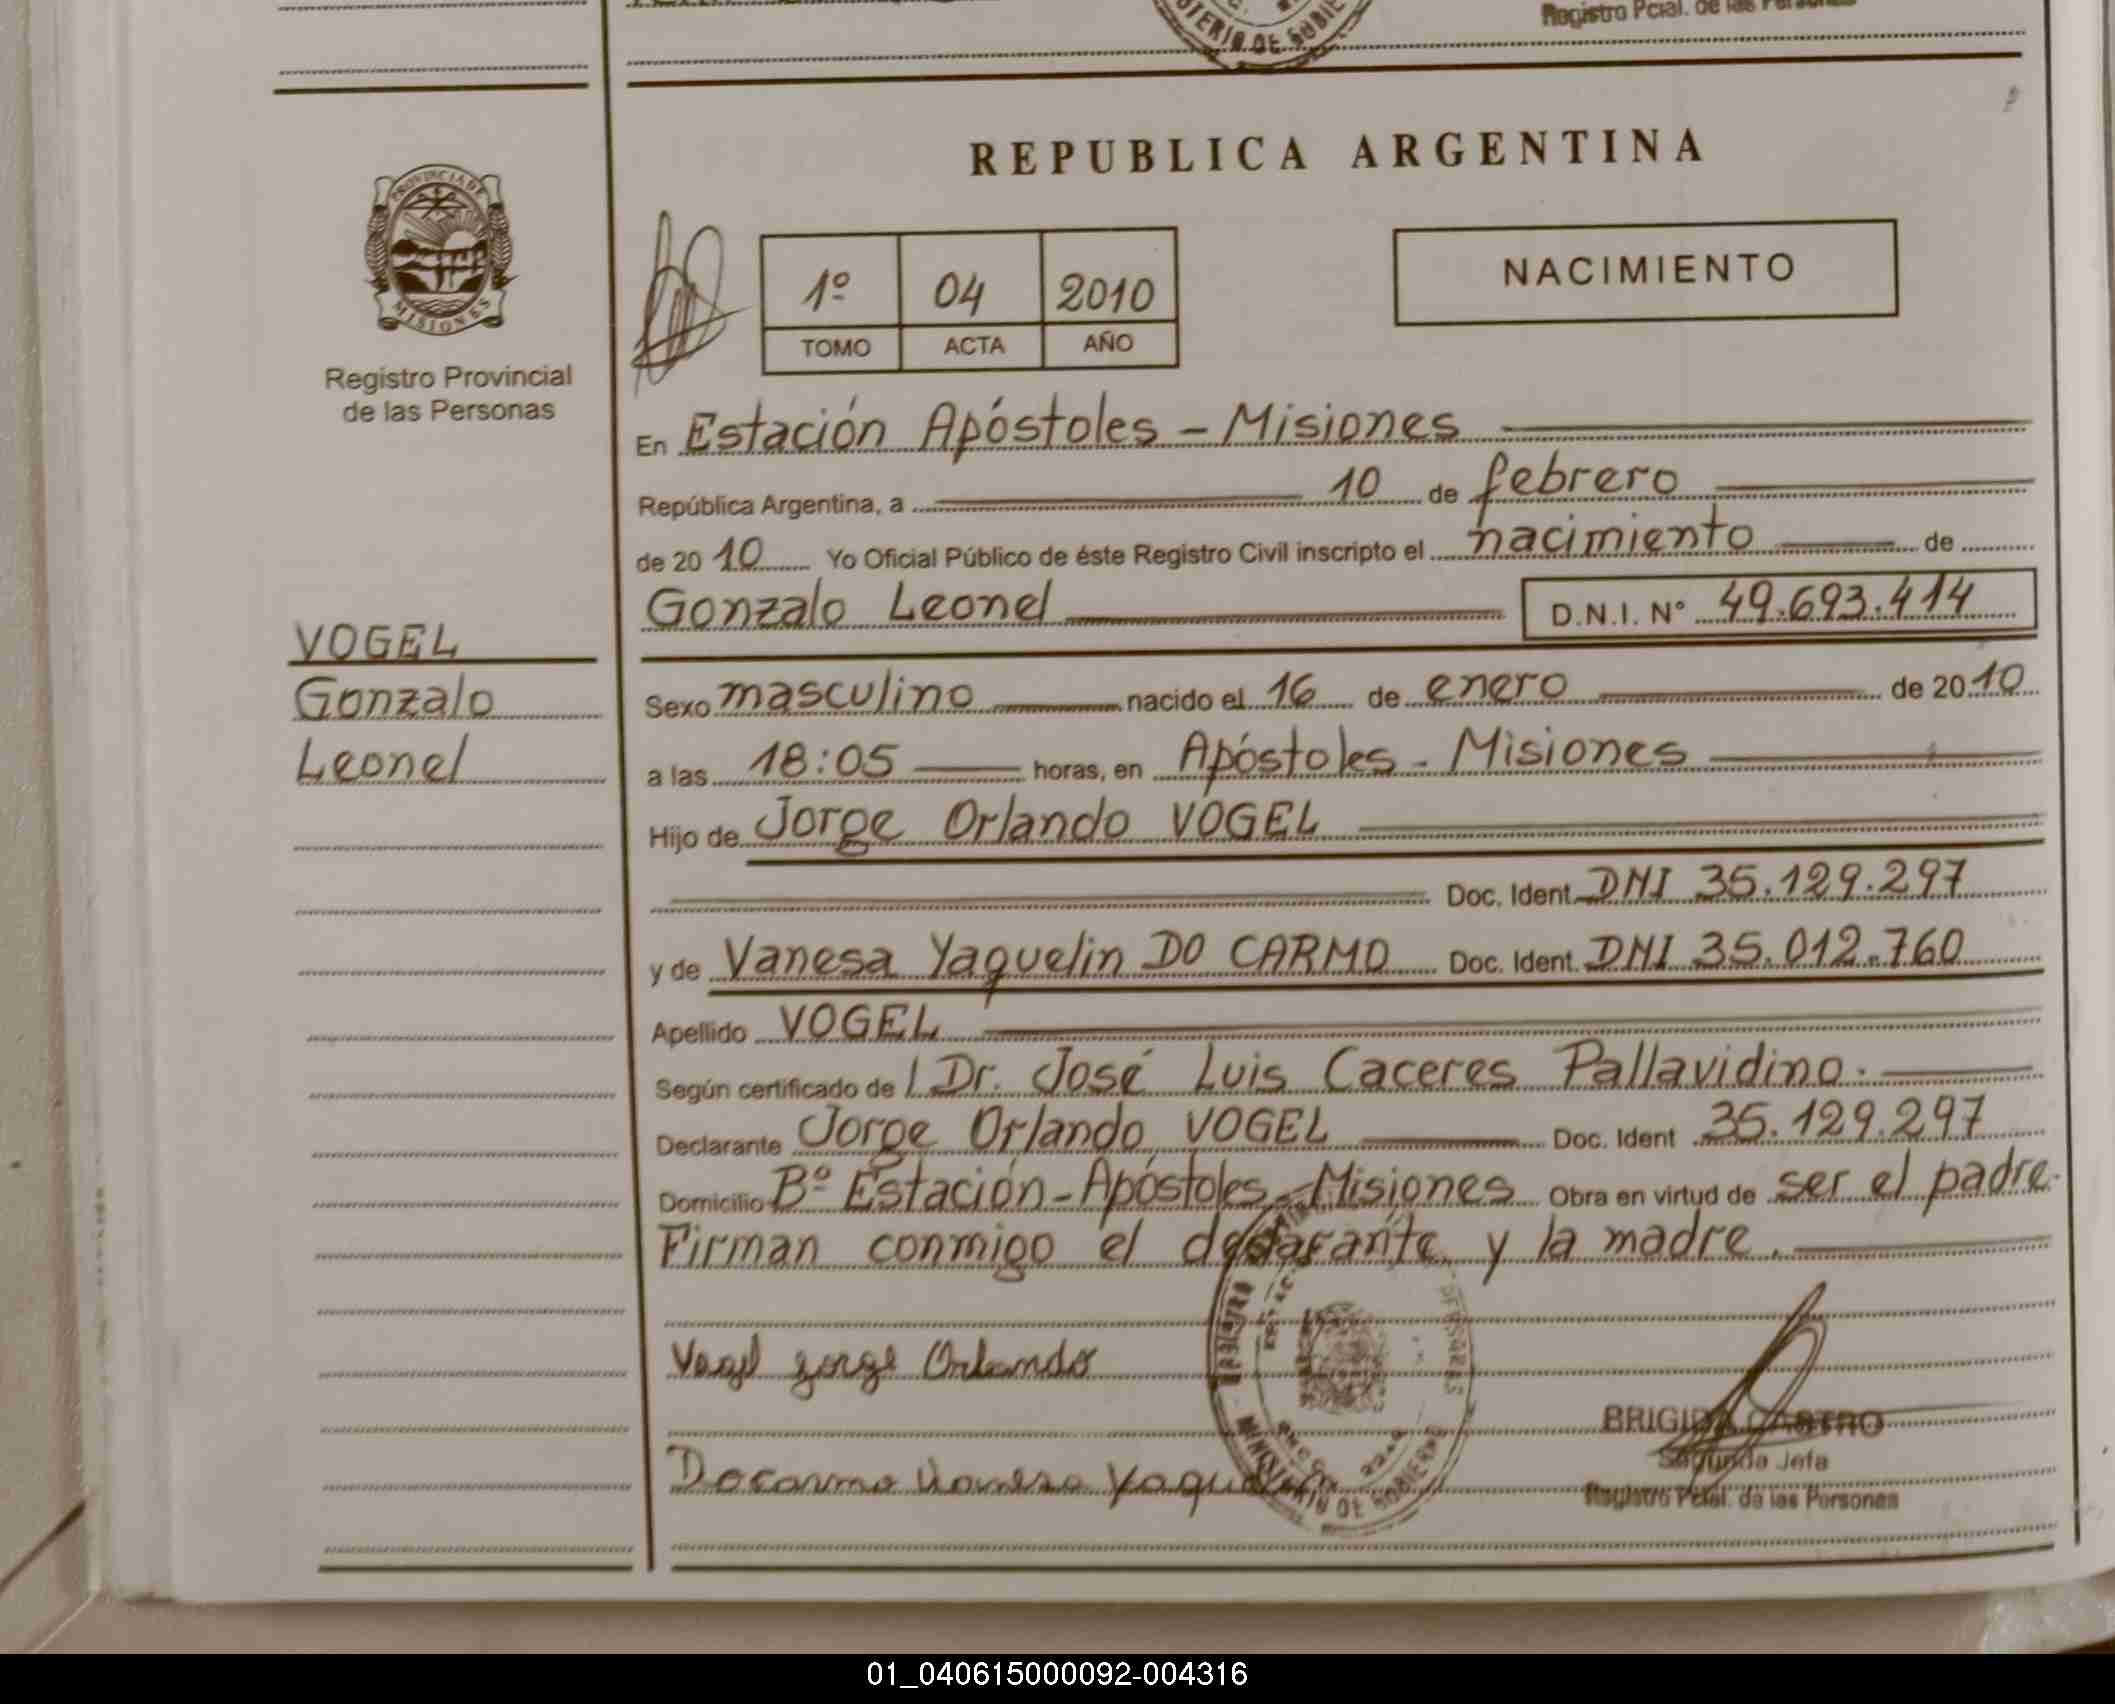 Registro Pcial. de las Personas
STERIO DE GOBIE
REPUBLICA ARGENTINA
PROVINCIA DE
MISIONES
Registro Provincial
de las Personas
1º 04 2010
TOMO ACTA AÑO
NACIMIENTO
En Estación Apóstoles - Misiones
República Argentina, a 10 de febrero
de 2010 Yo Oficial Público de éste Registro Civil inscripto el nacimiento de
Gonzalo Leonel D.N.I. N° 49.693.414
VOGEL
Gonzalo
Leonel
Sexo masculino nacido el 16 de enero de 2010
a las 18:05 horas, en Apóstoles - Misiones
Hijo de Jorge Orlando VOGEL
Doc. Ident. DNI 35.129.297
y de Vanesa Yaquelin DO CARMO Doc. Ident. DNI 35.012.760
Apellido VOGEL
Según certificado de / Dr. José Luis Caceres Pallavidino.
Declarante Jorge Orlando VOGEL Doc. Ident 35.129.297
Domicilio Bº Estación - Apóstoles - Misiones Obra en virtud de ser el padre.
Firman conmigo el declarante y la madre.
Vogel Jorge Orlando
BRIGIDA CASTRO
Segunda Jefa
Registro Pcial. de las Personas
Docarmo Vanesa Yaquelin
01_040615000092-004316